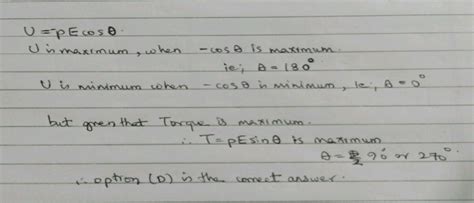 U = -pE cos θ.
U is maximum, when -cos θ is maximum.
ie; θ = 180°
U is minimum when -cos θ is minimum, ie; θ = 0°
but given that Torque is maximum.
∴ T = pE sin θ is maximum
θ = 90° or 270°
∴ option (D) is the correct answer.